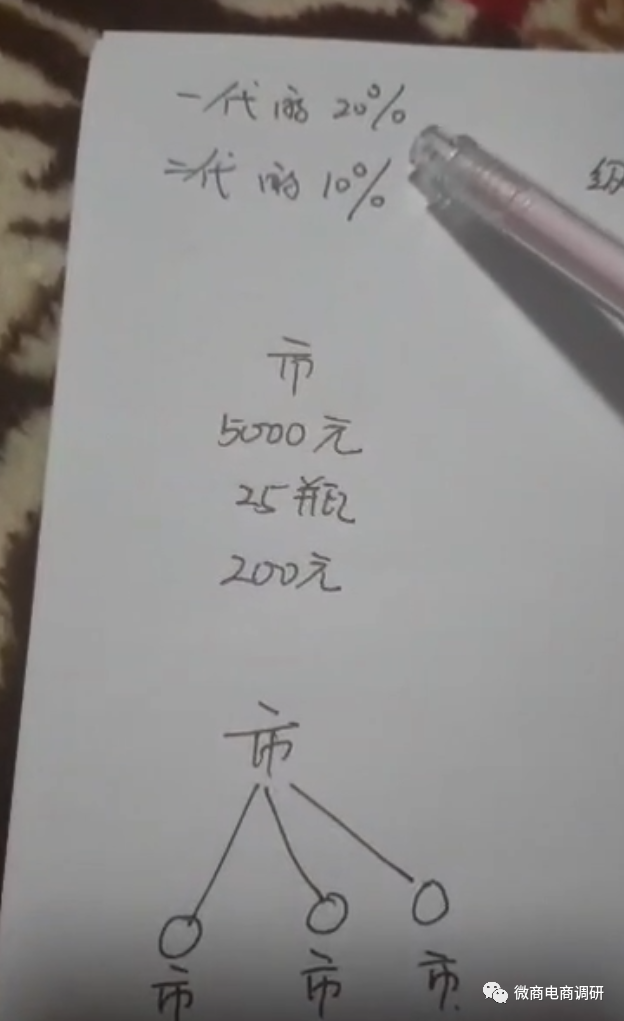 一代的 20%
二代的 10%
级
市
5000元
25瓶
200元
市
市 市 市
微商电商调研